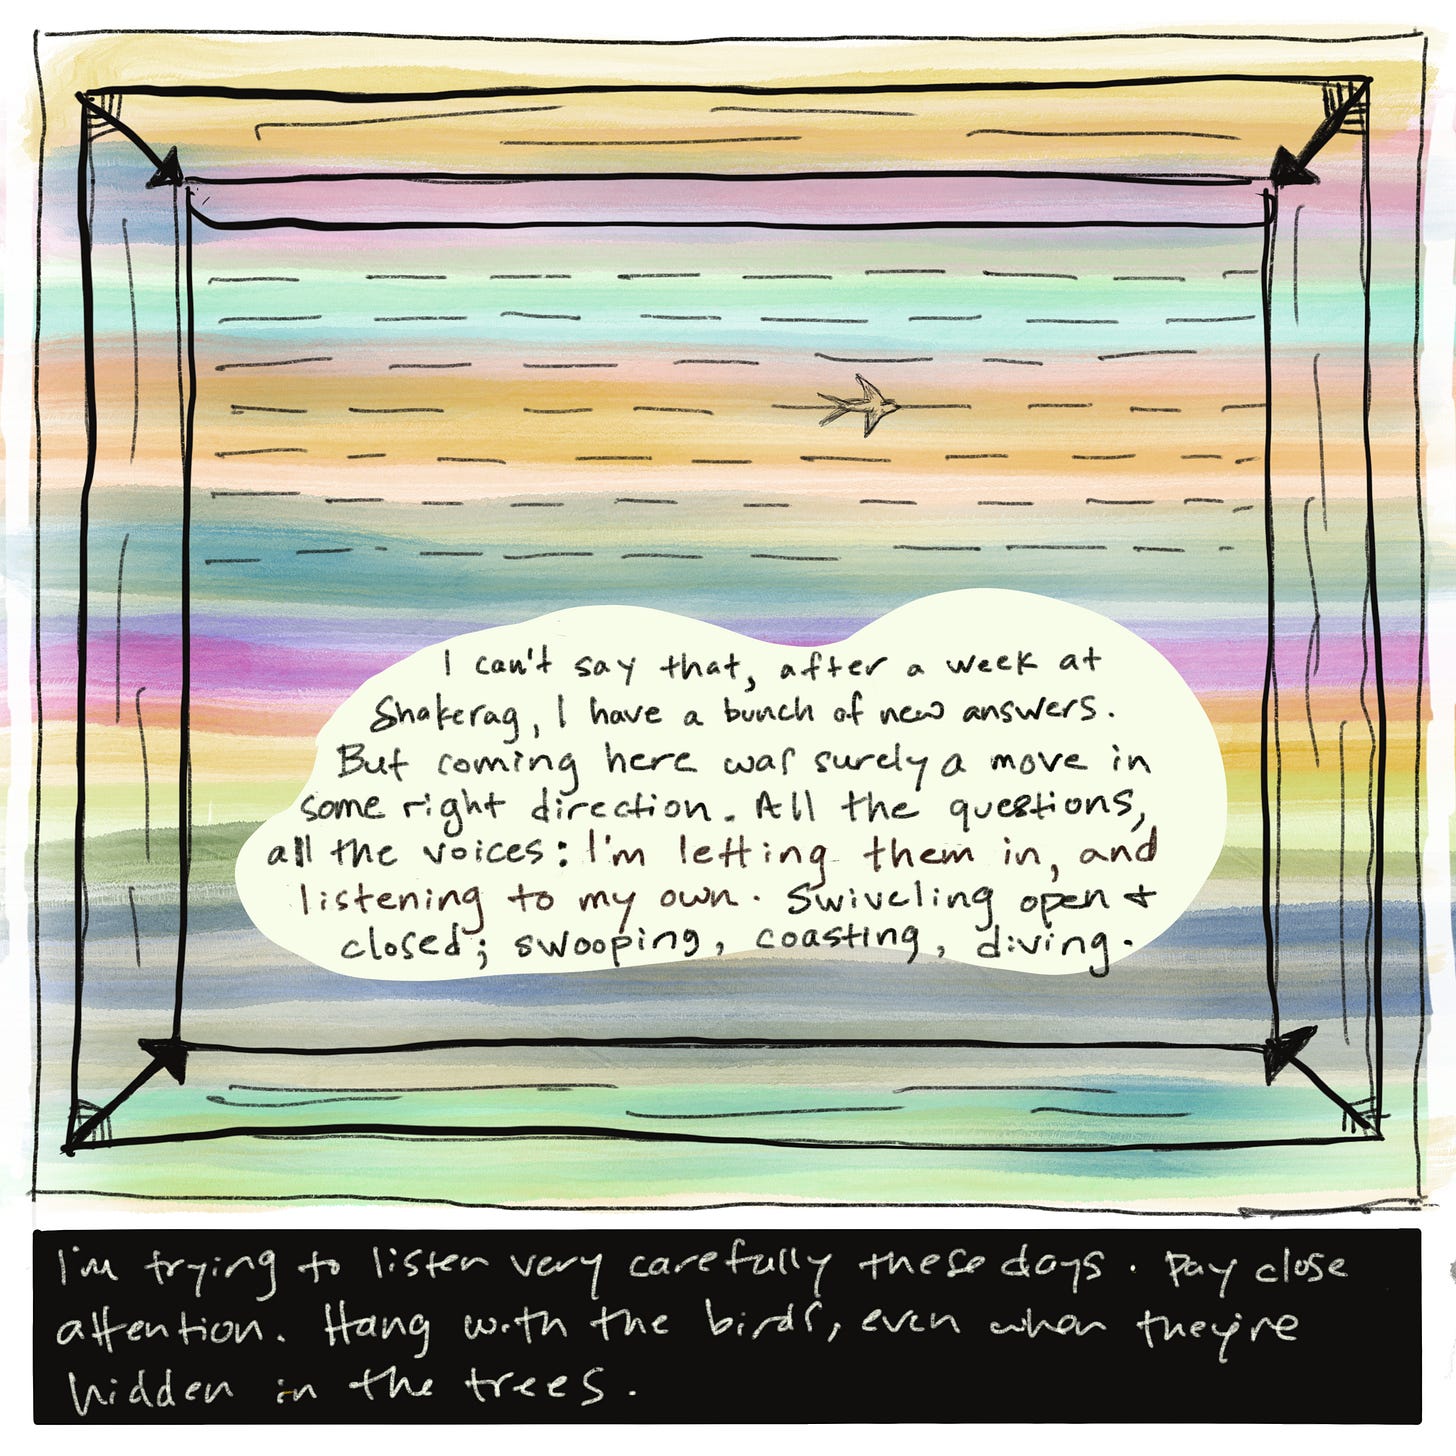 I can't say that, after a week at
Shakerag, I have a bunch of new answers.
But coming here was surely a move in
some right direction. All the questions,
all the voices: I'm letting them in, and
listening to my own. Swiveling open +
closed; swooping, coasting, diving.
I'm trying to listen very carefully these days. Pay close
attention. Hang with the birds, even when they're
hidden in the trees.